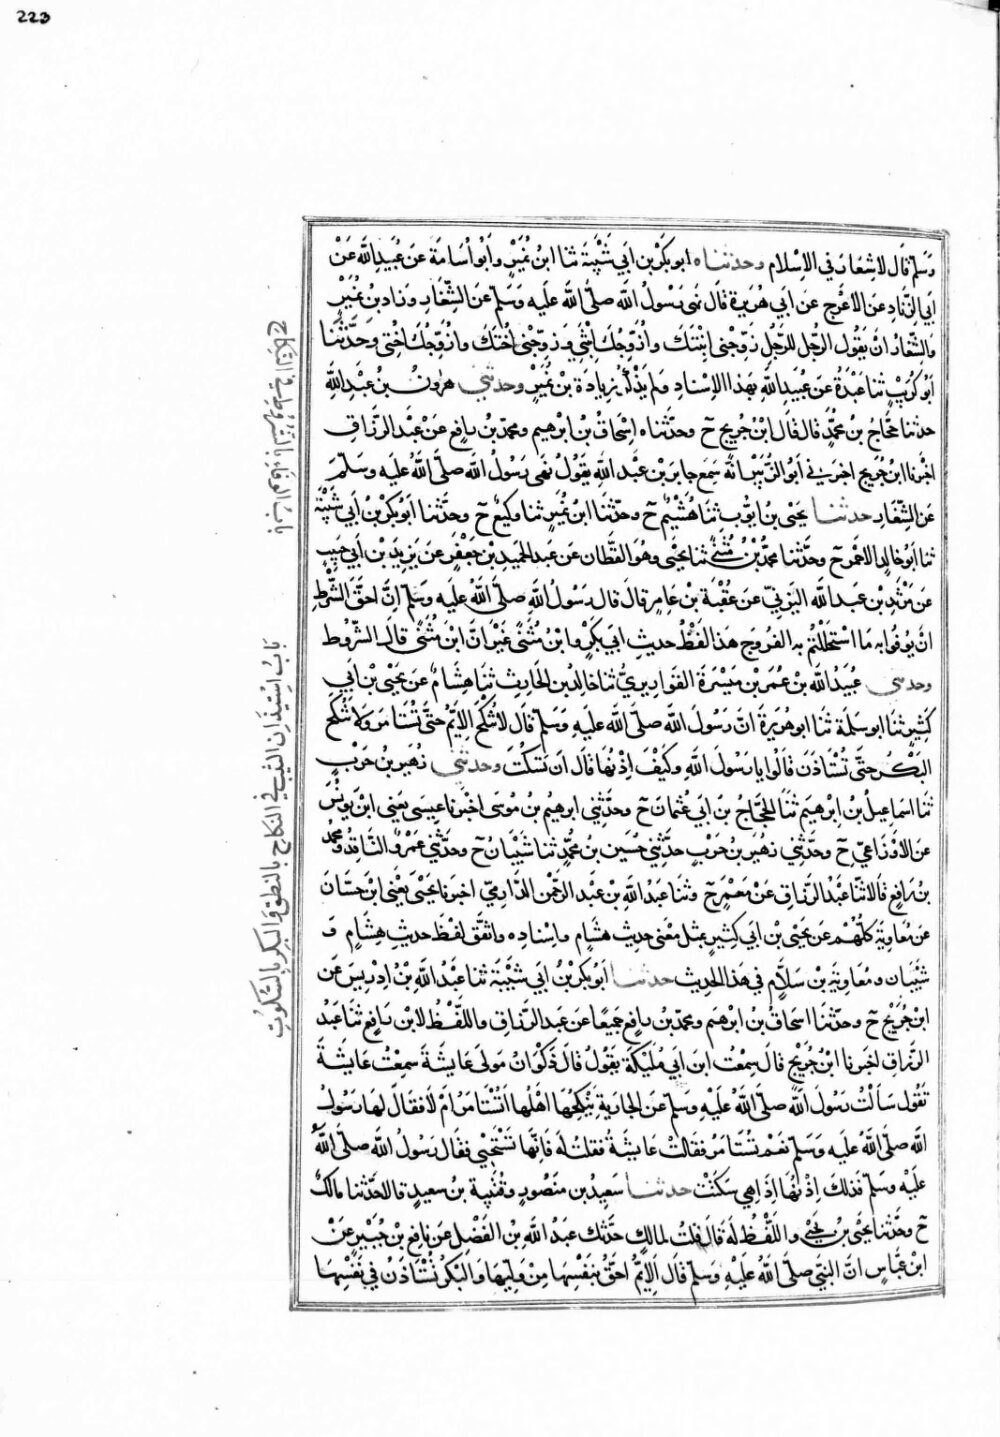 223
وَسَلَّم قَالَ لاشِغَارَ فِي الاِسْلَام وحدثناه ابو بَكْرِ بن اَبي شَيْبَةَ ثنا ابنُ نُمَيْرٍ وَاَبُو اُسَامَةَ عَن عُبَيدِ اللهِ عَنْ
اَبِي الزِّنَادِ عَنِ الاَعْرَجِ عَن اَبي هُرَيرَةَ قَالَ نَهى رَسُولُ اللهِ صلَّى اللهُ عَلَيهِ وَسَلَّم عَنِ الشِّغَارِ وزاد بنُ نُمَيْرٍ
والشِّغَارُ اَنْ يَقُولَ الرَّجُل للرَّجُلِ زَوِّجْنِي ابْنَتَكَ واُزَوِّجُكَ اِبْنَتِي وَزَوِّجْنِي اُخْتَكَ واُزَوِّجُكَ اُخْتِي وَحَدَّثَنَا
اَبُو كُرَيْبٍ ثنا عَبْدَةُ عَن عُبَيدِ اللهِ بهَذَا الاِسْنَادِ وَلم يَذْكُرْ زِيَادَةَ بْنِ نُمَيْرٍ وحدثني هَرُونُ بنُ عَبْدِ اللهِ
حدثنا حَجَّاجُ بن مُحَمَّدٍ قال قَالَ ابْنُ جُرَيجٍ ح وحَدَّثناه اِسْحَاقُ بن ابرهيم ومحمد بن رافِعٍ عَن عَبْدِ الرَّزَّاقِ
اخبَرَنا ابنُ جُرَيجٍ اخبَرَنِي اَبُو الزُّبَيرِ اَنَّهُ سَمِعَ جابر بْنَ عَبْدِ اللهِ يَقُولُ نَهَى رَسُولُ اللهِ صلَّى اللهُ عَلَيهِ وَسَلَّم
عَنِ الشِّغَارِ حدثنا يَحيَى بن ايُّوبَ ثنا هُشَيْمٌ ح وحَدَّثَنَا ابْنُ نُمَيرٍ ثنا وكِيعٌ ح وحَدَّثنا اَبُو بَكْرِ بْنُ اَبي شَيْبَةَ
ثنا اَبُو خَالِدٍ الاَحْمَر ح وحَدَّثنا محمَّدُ بْنُ مُثَنَّى ثنا يَحْيَى وهُوَ القَطَّان عَن عَبدِ الحَمِيدِ بن جَعْفَرٍ عَن يَزِيدَ بْنِ اَبِي حَبِيبٍ
عَن مَرْثَدِ بْنِ عَبدِ اللهِ اليَزَنِيِّ عَن عُقْبَةَ بْنِ عَامِرٍ قَالَ قالَ رَسُولُ اللهِ صلَّى اللهُ عَلَيهِ وَسَلَّم اِنَّ اَحَقَّ الشَّرْطِ
اَنْ يُوفُوا بِهِ مَا اسْتَحلَلْتُم بِهِ الفُرُوجَ هَذا لَفْظُ حديثِ ابي بَكْرٍ وابْنِ مُثَنَّى غَيْرَ اَنَّ ابْنَ مُثَنَّى قالَ الشُّرُوط
وحدثني عُبَيْدُ اللهِ بن عُمَرَ بْنِ مَيْسَرَةَ القَوَارِيرِيُّ ثنا خالدُ بن الحَارِث ثَنَا هِشَامٌ عَن يَحْيَى بْنِ اَبي
كَثِيرٍ ثَنَا ابو سَلَمَةَ ثَنَا ابو هُرَيْرَةَ اَنَّ رَسُولَ اللهِ صَلَّى اللهُ عَلَيهِ وَسَلَّم قَالَ لاتُنْكَحُ الاَيِّمُ حَتَّى تُسْتَامَرَ وَلا تُنْكَحُ
البِكْرُ حتَّى تُسْتَاذَنَ قَالُوا يا رَسُولَ اللهِ وكَيْفَ اِذْنُهَا قَالَ اَنْ تَسْكُتَ وحدثني زُهَيرُ بنُ حَرْبٍ
ثَنَا اِسمَاعِيلُ بن اِبْرهيم ثَنَا الحَجَّاجُ بن اَبي عُثمَان ح وحَدَّثَنِي ابرهيم بن مُوسَى اخْبَرَنَا عِيسَى يَعنِي ابنَ يُونُسَ
عَنِ الاَوْزَاعِيِّ ح وحَدَّثَنِي زهَيرُ بن حَرْبٍ حَدَّثَنِي حُسَين بن مُحَمَّدٍ ثنا شَيْبَان ح وحَدَّثَنِي عَمْرٌو النَّاقِدُ ومُحَمَّدُ
بْنُ رَافِعٍ قَالا ثنَا عَبْدُ الرَّزَّاقِ عَنْ مَعْمَرٍ ح وثنا عَبدُ اللهِ بْنُ عَبْدِ الرَّحْمَن الدَّارِمِيّ اخبَرنَا يَحْيَى يَعْنِي ابنَ حَسَّانَ
عَن مُعَاوِيَةَ كُلُّهُمْ عَن يَحْيَى بن اَبي كَثِيرٍ بِمِثْلِ مَعْنَى حديثِ هِشَامٍ واِسْنَادِهِ واتَّفَقَ لَفْظُ حديثِ هِشَامٍ وَ
شَيْبَان ومُعَاوِيَةَ بْنِ سَلَّامٍ فِي هَذَا الحَدِيث حدثنا اَبُو بَكْرِ بْنُ اَبي شَيْبَةَ ثنا عَبْدُ اللهِ بْنُ اِدْرِيسَ عَن
ابْنِ جُرَيْجٍ ح وحَدَّثَنَا اسحَاقُ بن ابْرهيم ومحمدُ بن رافِعٍ جميعًا عَن عَبد الرَّزَّاقِ واللَّفْظُ لابْنِ رَافِعٍ ثنَا عَبْدُ
الرَّزَّاق اخبَرنا ابْنُ جُرَيْجٍ قالَ سمِعْتُ ابنَ اَبي مُلَيْكَةَ يقُولُ قالَ ذَكْوَانُ مَولَى عَايِشَةَ سَمِعْتُ عَايِشَةَ
تَقُولُ سَاَلْتُ رَسُولَ اللهِ صلَّى اللهُ عَلَيْهِ وَسَلَّم عَنِ الجَارِيَةِ يُنْكِحُهَا اَهْلُهَا اَتُسْتَامَرُ اَمْ لاَ فَقَالَ لهَا رَسُولُ
اللهِ صلَّى اللهُ عَلَيهِ وَسَلَّم نَعَمْ تُسْتَامَرُ فقَالَتْ عَايِشَةُ فقلتُ لَهُ فَاِنَّهَا تَسْتَحْيِي فقَالَ رَسُولُ اللهِ صلى اللهُ
عَلَيْهِ وسَلَّم فَذلكَ اِذْنُهَا اِذَا هِيَ سَكَتَتْ حدثنا سَعِيدُ بن مَنْصُورٍ وقُتَيبَة بن سعِيدٍ قالا حَدَّثنا مالكٌ
ح وحَدَّثنا يَحْيَى بنُ يَحْيَى واللَّفْظُ لَه قَالَ قلتُ لمالكٍ حَدَّثَكَ عبدُ اللهِ بْنُ الفَضْلِ عَن نَافِعِ بْنِ جُبَيْرٍ عَنْ
ابْنِ عَبَّاسٍ اَنَّ النبيَّ صلَّى اللهُ عَلَيهِ وَسَلَّم قَالَ الاَيِّمُ اَحَقُّ بِنَفْسِهَا مِنْ وَلِيِّهَا وَالبِكْرُ تُسْتَاذَنُ فِي نَفْسِهَا
بَابُ اِسْتِيذَانِ الثيِّب في النكاح بالنطق وَالبِكر بالسُّكوتِ